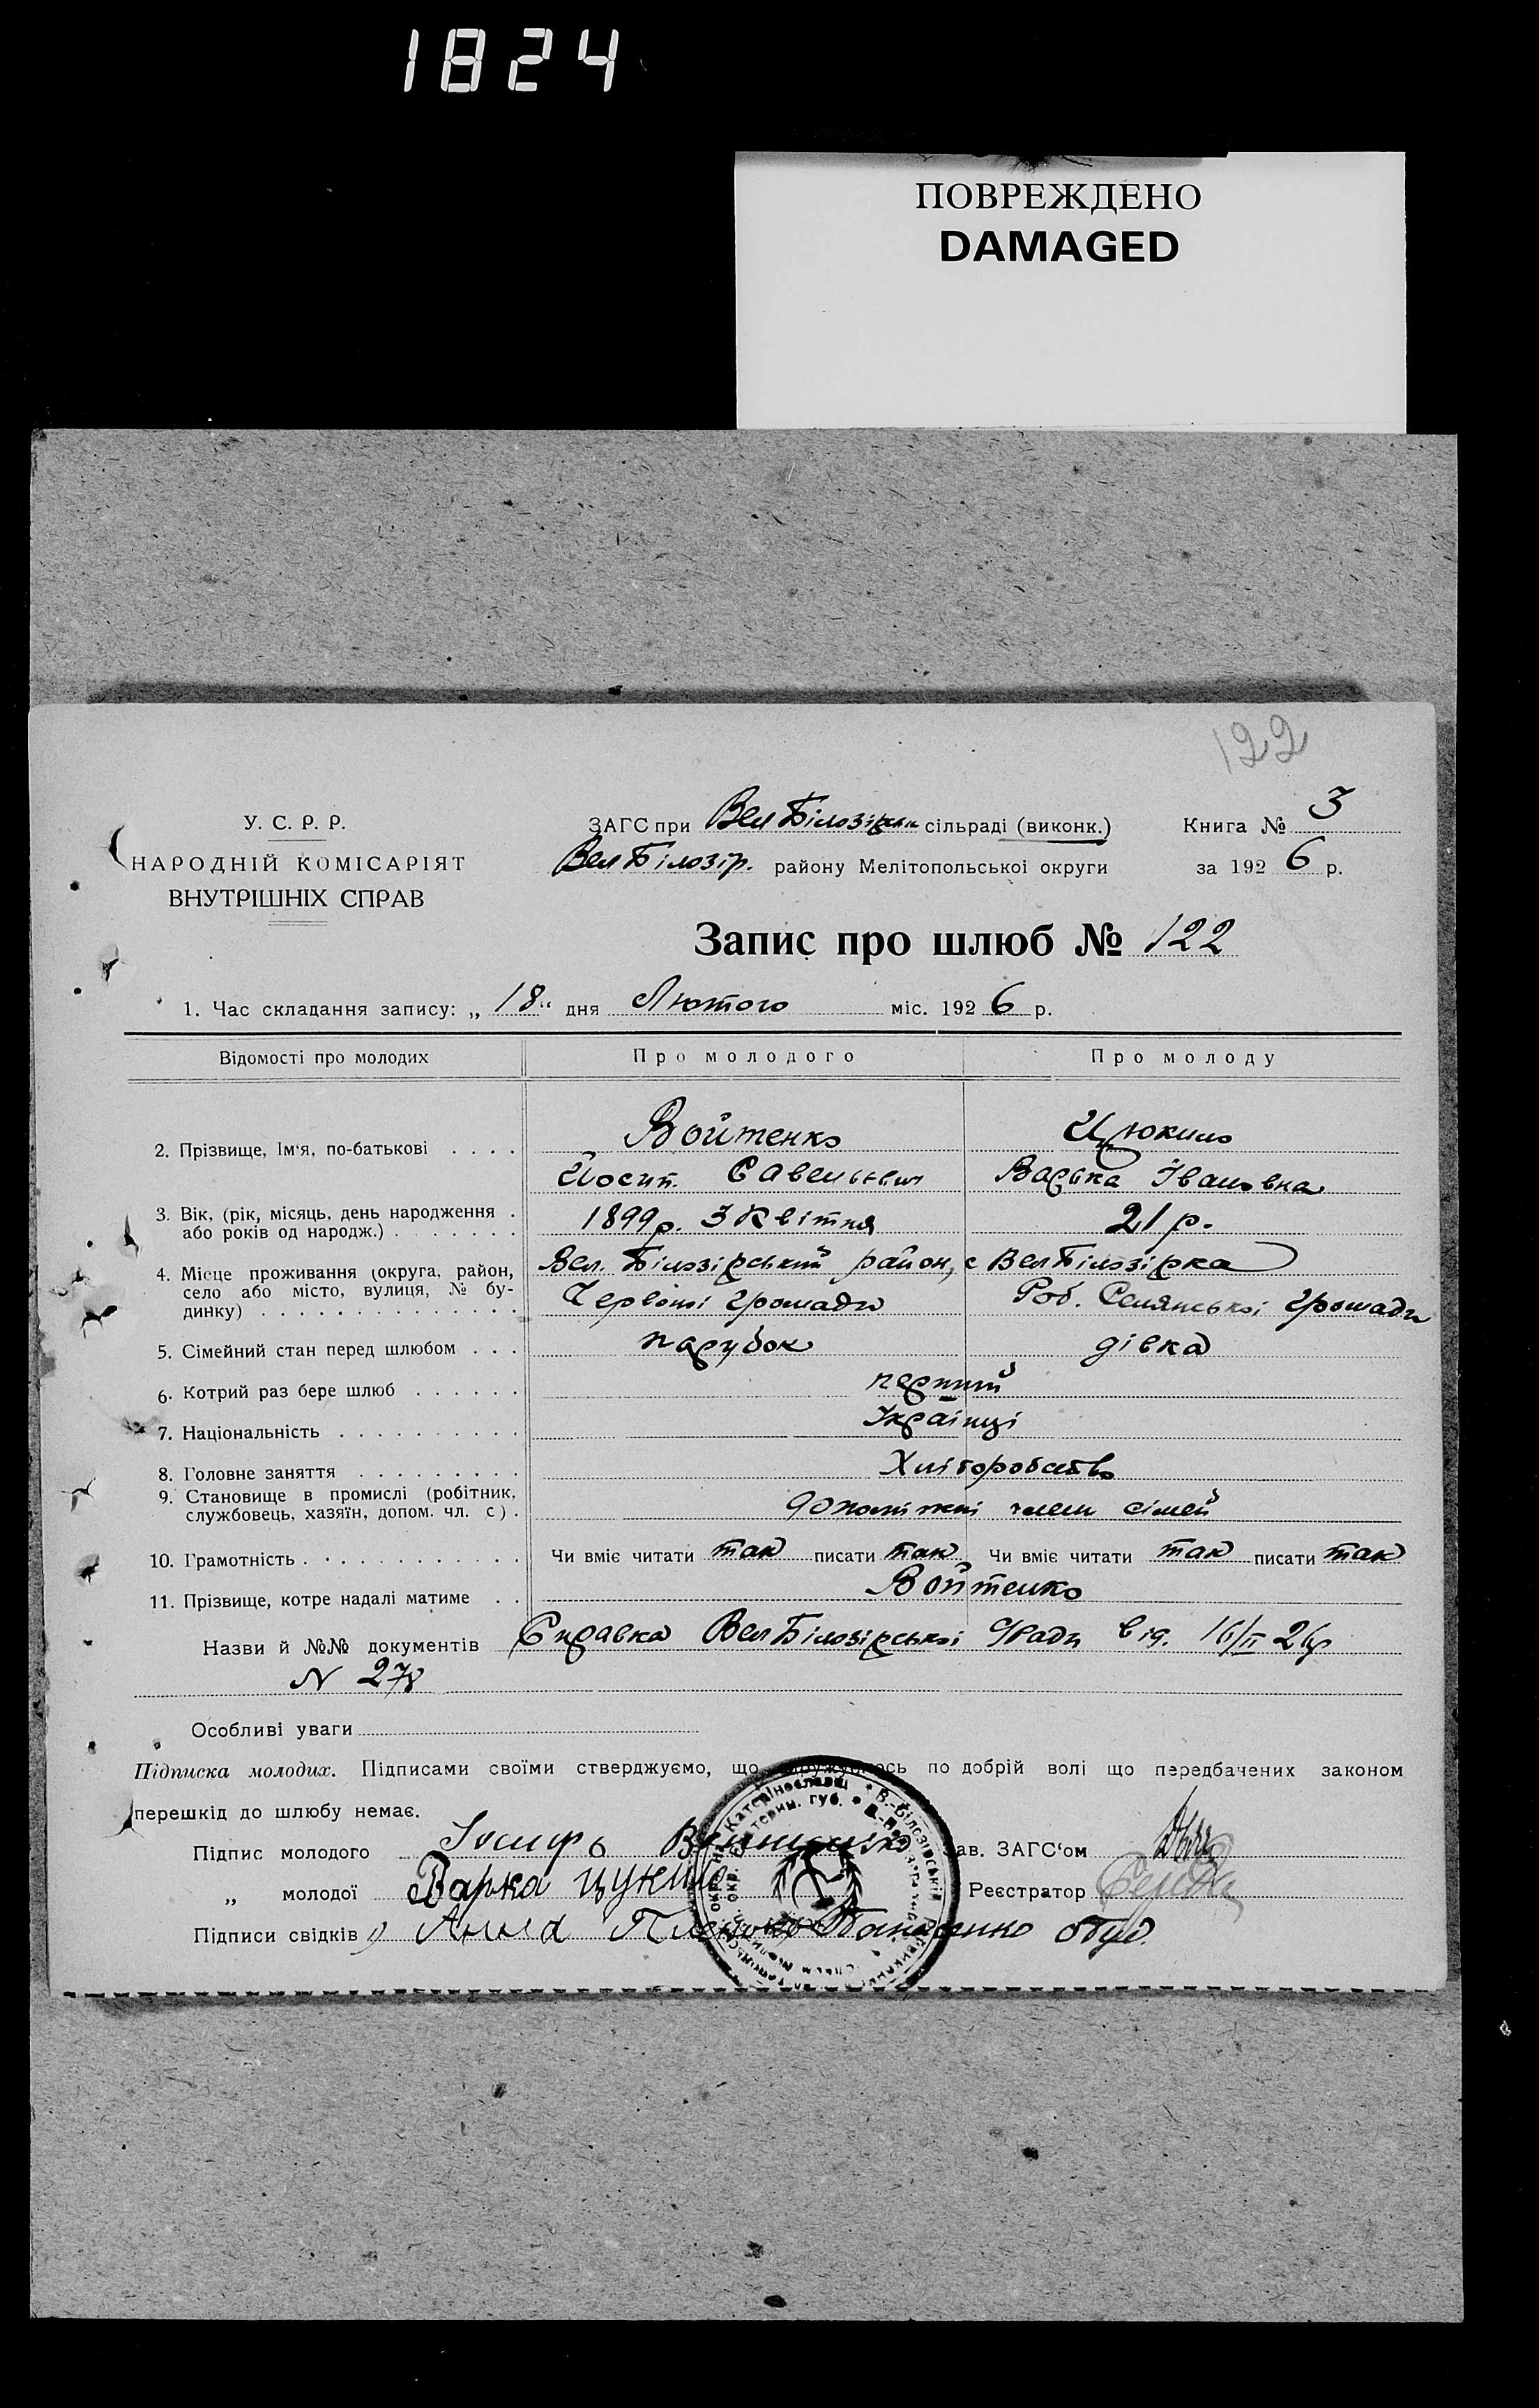 1824
ПОВРЕЖДЕНО
DAMAGED
122
У. С. Р. Р.
НАРОДНІЙ КОМІСАРІЯТ
ВНУТРІШНІХ СПРАВ
ЗАГС при Вел Білозірськ сільраді (виконк.)
Вел Білозір. району Мелітопольської округи
Книга № 3
за 1926 р.
Запис про шлюб № 122
1. Час складання запису: „18“ дня Лютого міс. 1926 р.
Відомості про молодих Про молодого Про молоду
2. Прізвище, Ім‘я, по-батькові . . . . Войтенко Цюкило
Йосип Савельевич Варька Івановна
3. Вік, (рік, місяць, день народження . 1899р. 3 Квітня 21 р.
або років од народж.) . . . . . . .
4. Місце проживання (округа, район, Вел. Білозірський район, с Вел Білозірка
село або місто, вулиця, № бу-
динку) . . . . . . . . . . . . . . Червоної громади Роб. Селянської громади
5. Сімейний стан перед шлюбом . . . парубок дівка
6. Котрий раз бере шлюб . . . . . . перший
7. Національність . . . . . . . . . . Українці
8. Головне заняття . . . . . . . . . Хліборобство
9. Становище в промислі (робітник, допоміжні члени сімей
службовець, хазяїн, допом. чл. с) .
10. Грамотність . . . . . . . . . . . . Чи вміє читати так писати так Чи вміє читати так писати так
11. Прізвище, котре надалі матиме . . Войтенко
Назви й №№ документів Справка Вел Білозірської Ради від. 16/II 26р
N 278
Особливі уваги
Підписка молодих. Підписами своїми стверджуємо, що одружуємось по добрій волі що передбачених законом
перешкід до шлюбу немає.
Підпис молодого Іосифъ Войтенко Зав. ЗАГС‘ом
„ молодої Варка цукило Реєстратор Середа
Підписи свідків